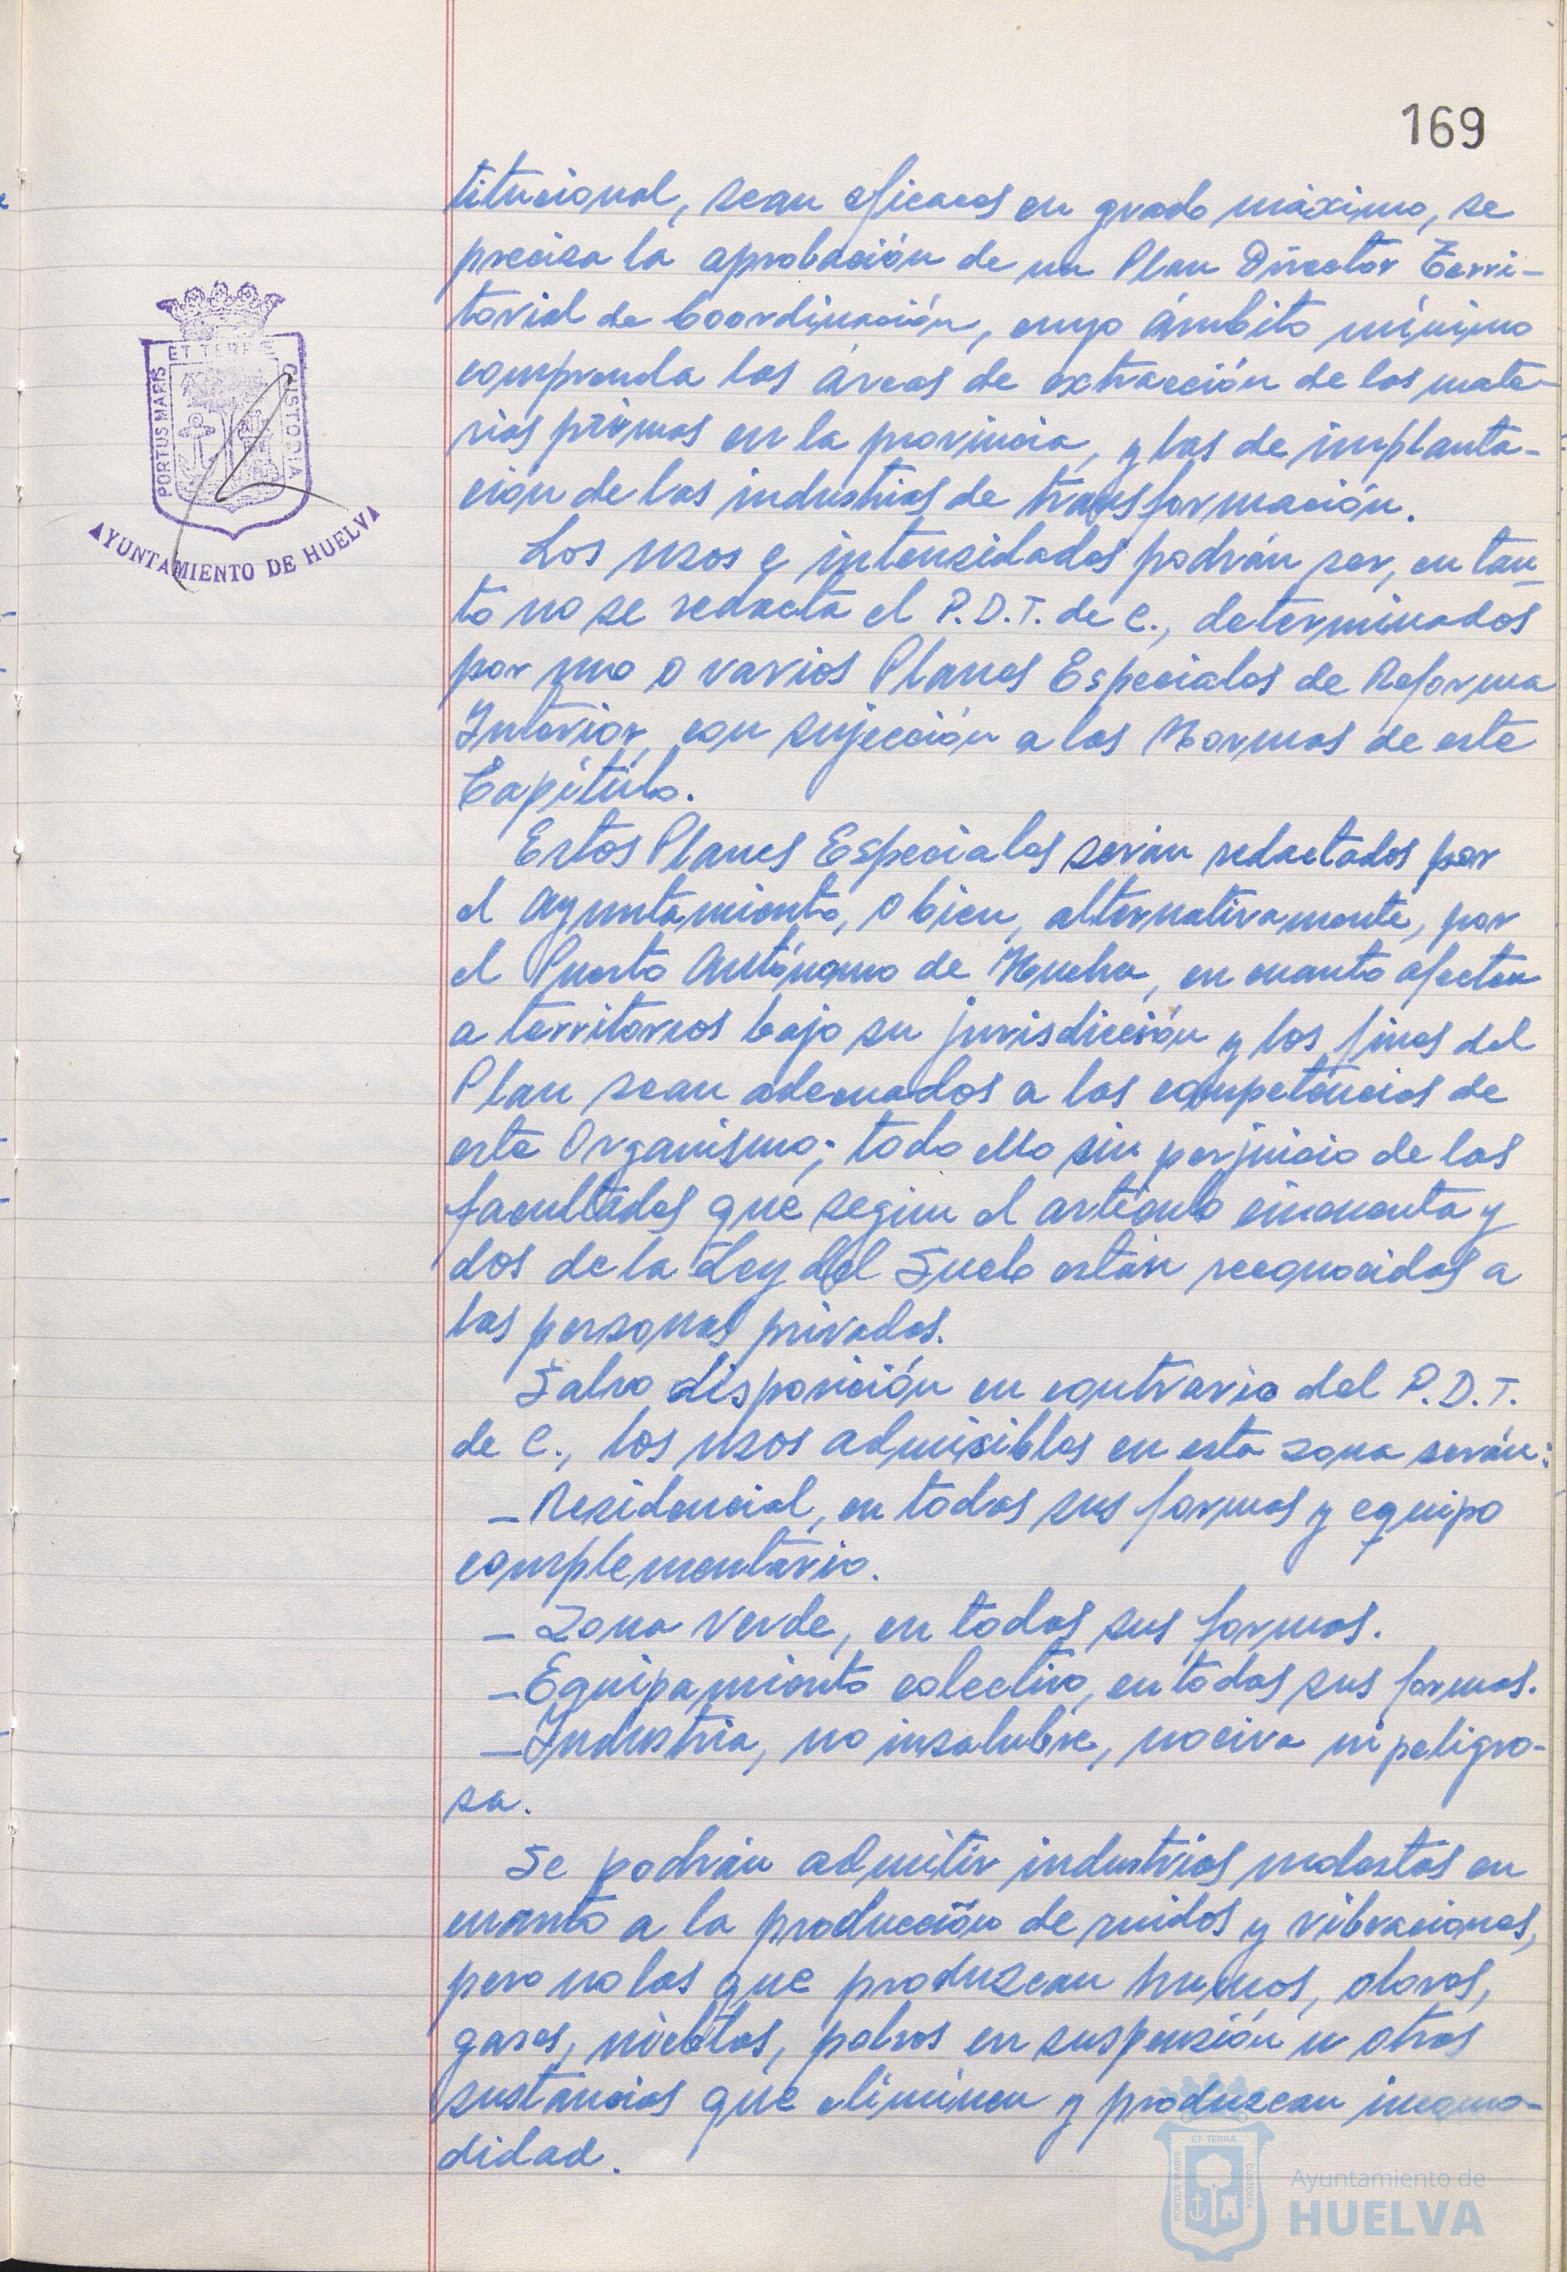 169
titucional, sean eficaces en grado máximo, se
precisa la aprobación de un Plan Director Terri-
torial de Coordinación, cuyo ámbito mínimo
comprenda las áreas de extracción de las mate-
rias primas en la provincia, y las de implanta-
ción de las industrias de transformación.
Los usos e intensidades podrán ser, en tan-
to no se redacta el P.D.T. de C., determinados
por uno o varios Planes Especiales de Reforma
Interior, con sujección a las Normas de este
Capítulo.
Estos Planes Especiales serán redactados por
el Ayuntamiento, o bien, alternativamente, por
el Puerto Autónomo de Huelva, en cuanto afecten
a territorios bajo su jurisdicción y los fines del
Plan sean adecuados a las competencias de
este Organismo; todo ello sin perjuicio de las
facultades que según el artículo cincuenta y
dos de la Ley del Suelo están reconocidas a
las personas privadas.
Salvo disposición en contrario del P.D.T.
de C., los usos admisibles en esta zona serán:
- Residencial, en todas sus formas y equipo
complementario.
- Zona verde, en todas sus formas.
- Equipamiento colectivo, en todas sus formas.
- Industria, no insalubre, nociva ni peligro-
sa.
Se podrán admitir industrias molestas en
cuanto a la producción de ruidos y vibraciones,
pero no las que produzcan humos, olores,
gases, nieblas, polvos en suspensión u otras
sustancias que eliminen y produzcan incomo-
didad.
PORTUS MARIS ET TERRAE CUSTODIA
AYUNTAMIENTO DE HUELVA
PORTUS MARIS ET TERRAE CUSTODIA
Ayuntamiento de
HUELVA